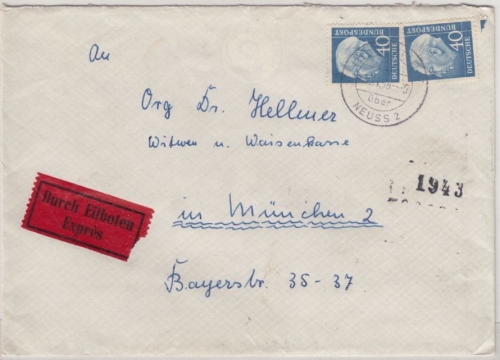 40
DEUTSCHE
BUNDESPOST
40
DEUTSCHE
BUNDESPOST
über
NEUSS 2
An
Org Dr. Hellmer
Witwen u. Waisenkasse
1943
Durch Eilboten
Exprès
in München 2
Bayerstr. 35-37